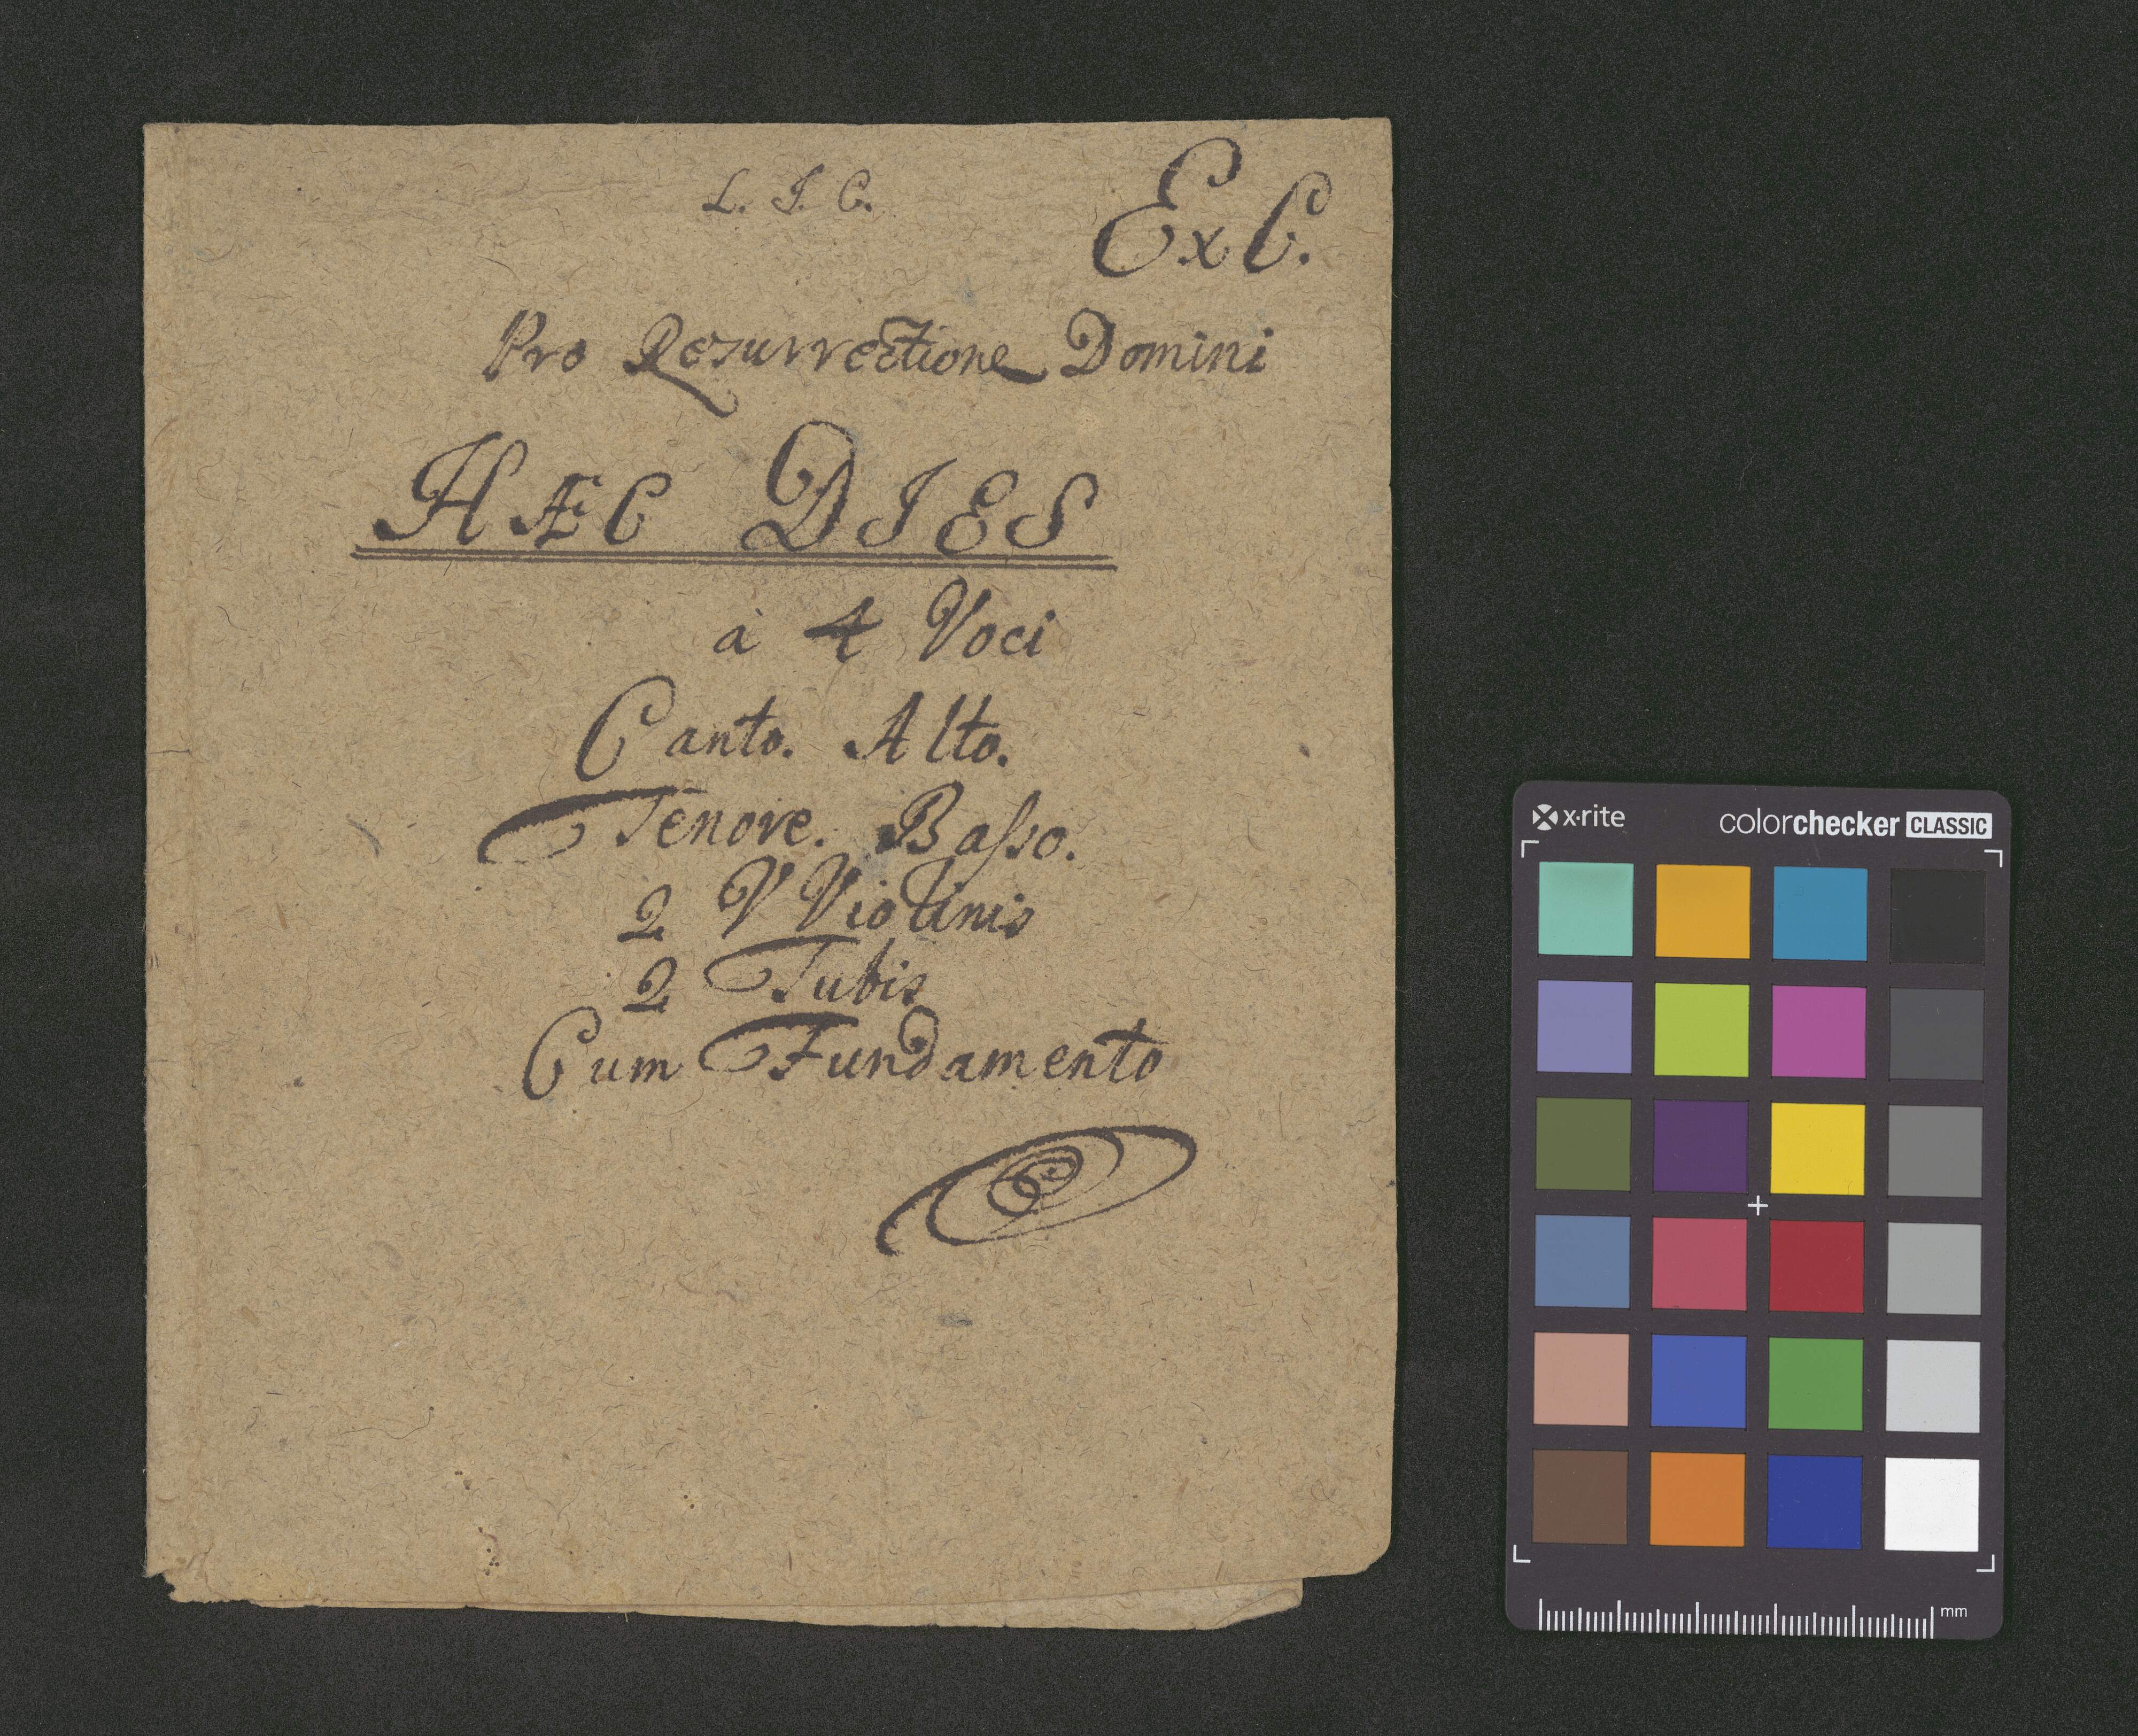 L. J. C.
Ex C.
Pro Resurrectione Domini
HÆC DIES
à 4 Voci
Canto. Alto.
Tenore. Baſso.
2 VViolinis
2 Tubis
Cum Fundamento
x·rite
colorchecker CLASSIC
mm